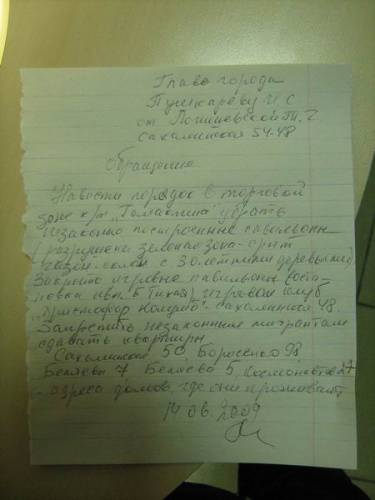 Главе города
Пушкареву И.С
от Логишевской Т.Г
Сахалинская 54-48
Обращение
Навести порядок в торговой
зоне к/т "Галактика" убрать
незаконно построенные павильоны
(разрушена зеленая зона - срыт
газон с 30-летними деревьями)
Закрыть игровые павильоны (оста-
новка "Тихая) игровой клуб
"Христофор Колумб" Сахалинская 48.
Запретить незаконным мигрантам
сдавать квартиры
Сахалинская 50 Борисенко 98
Беляева 7 Беляева 5 Космонавтов 17
- адреса домов, где они проживают
14.06.2009